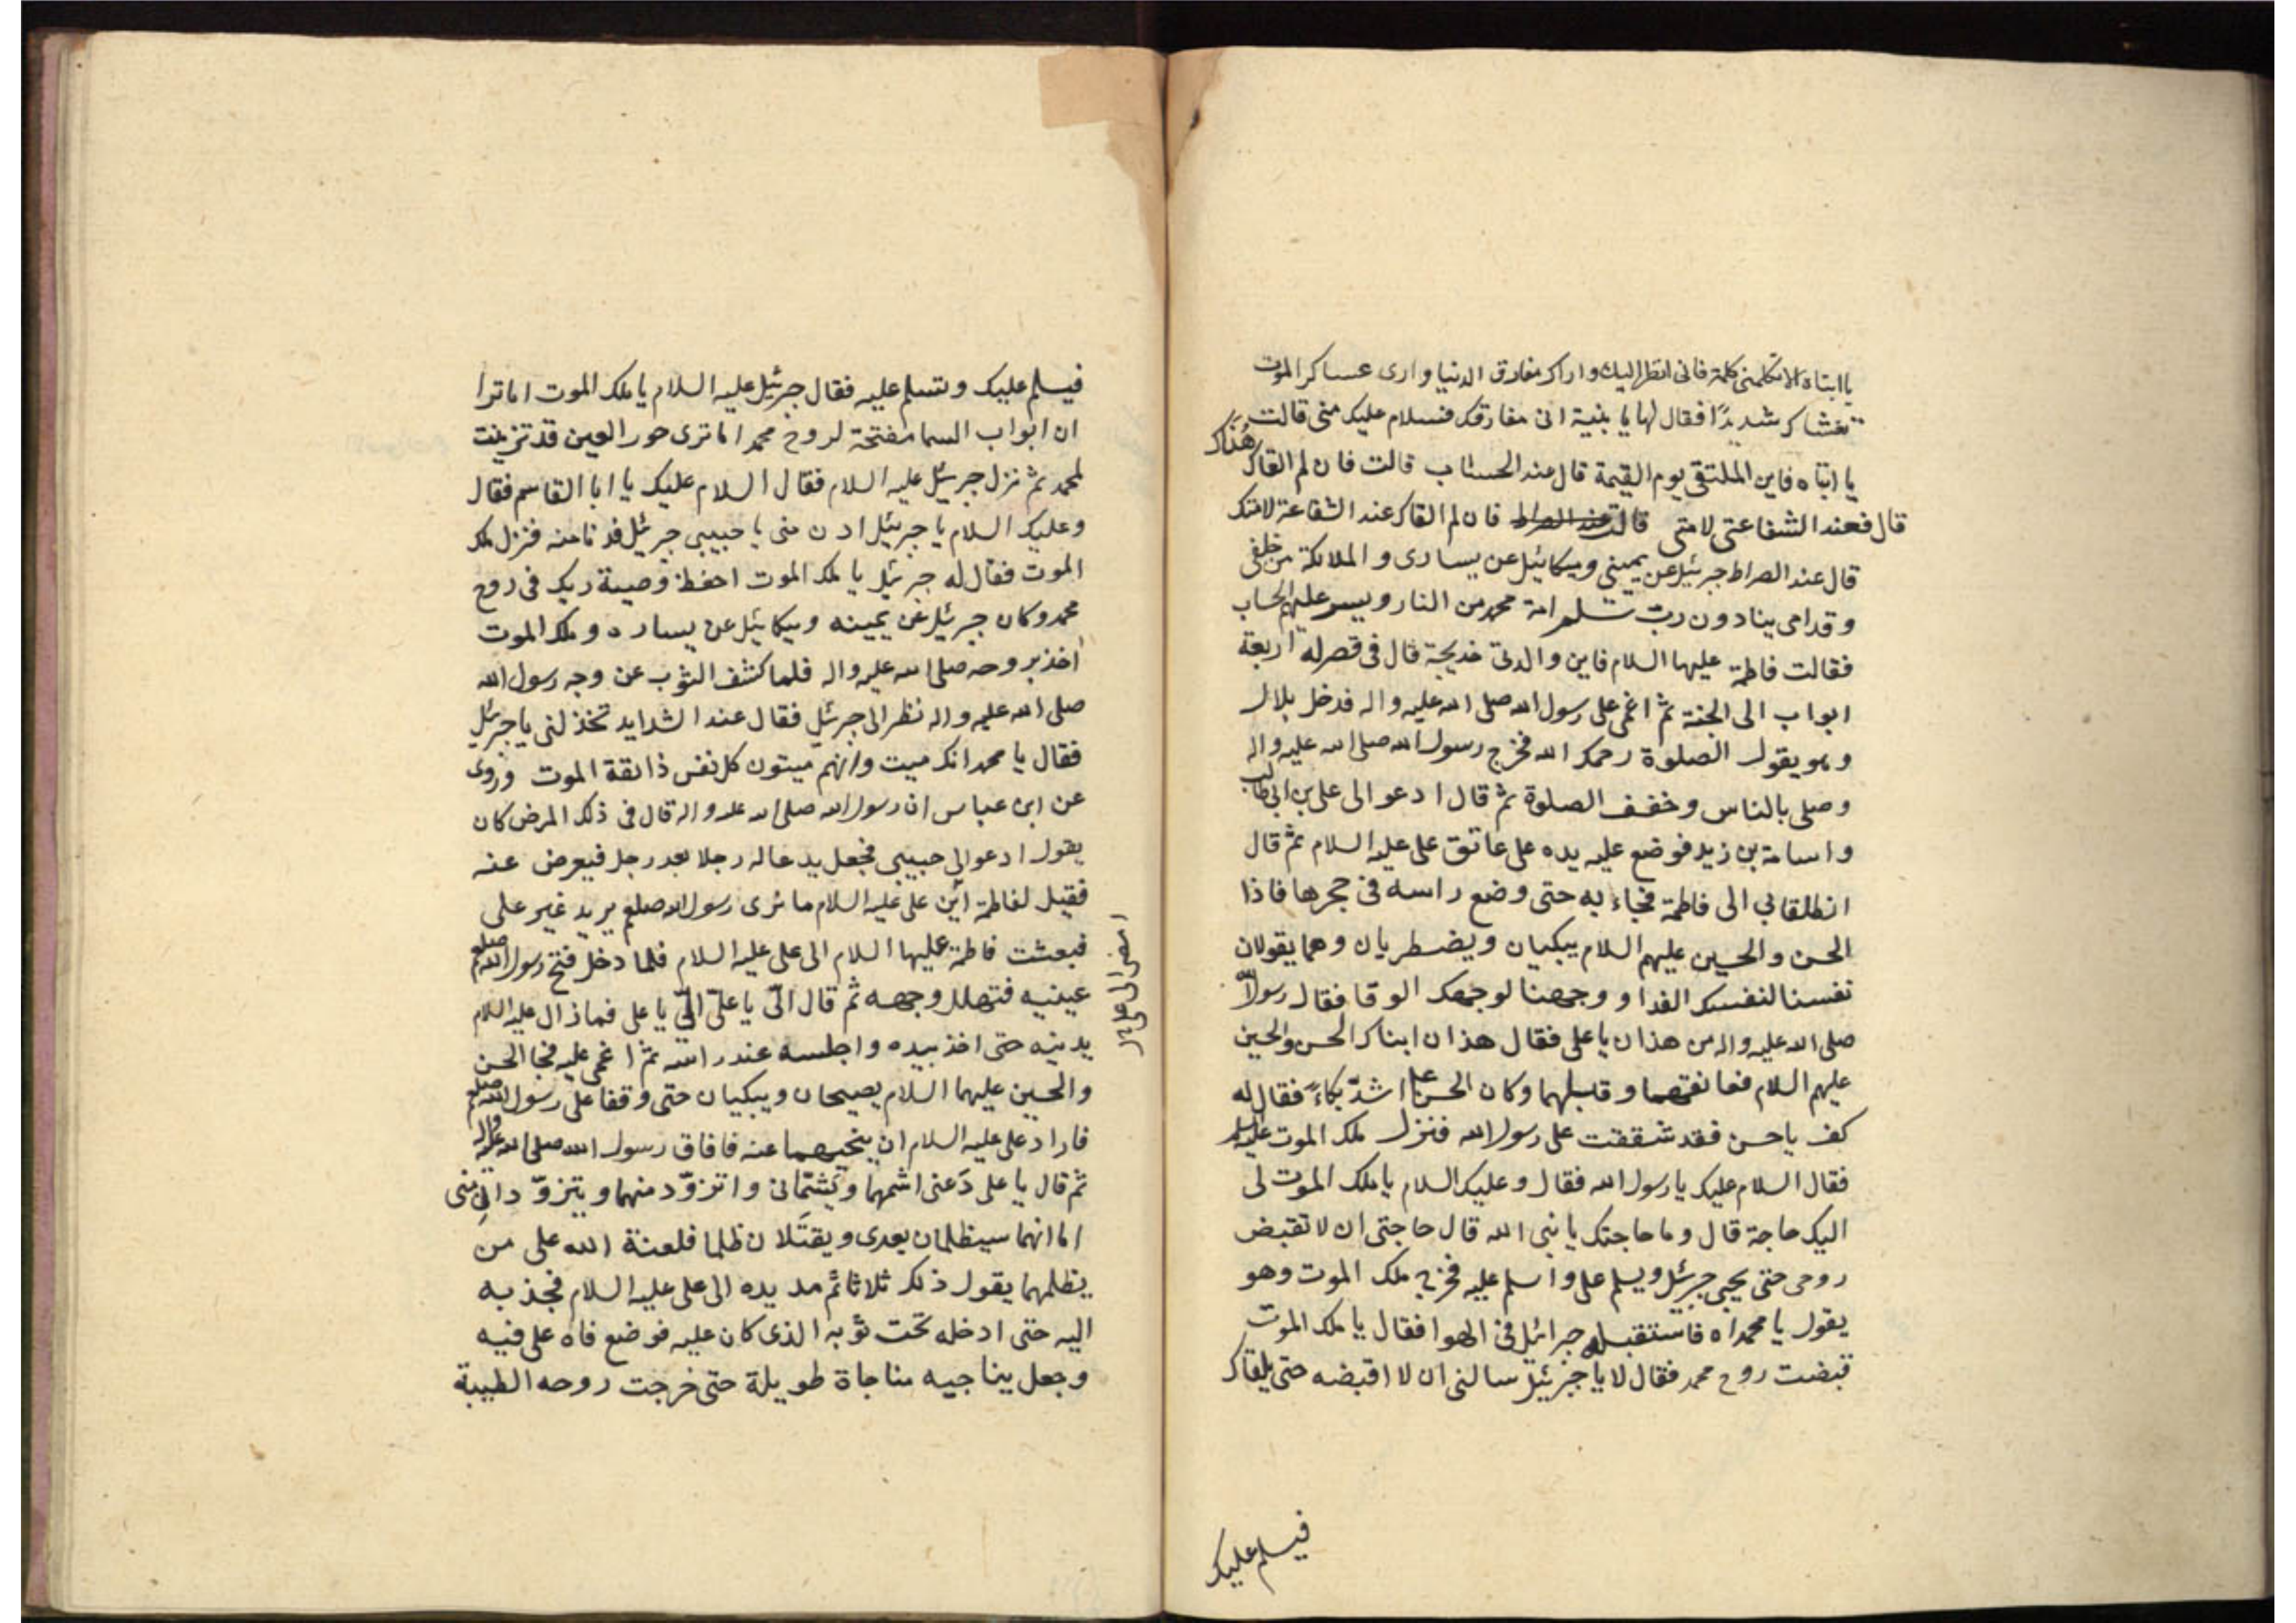 يا ابتاه الا تكلمنى كلمة فانى انظر اليك واراك مفارق الدنيا وارى عساكر الموت
تغشاك شديدًا فقال لها يا بنية انى مفارقك فسلام عليك منى قالت
يا ابتاه فاين الملتقى يوم القيمة قال عند الحساب قالت فان لم القاك هُنَاك
قال فعند الشفاعتى لامتى قالت عند الصراط فان لم القاك عند الشفاعة لامتك
قال عند الصراط جبرئيل عن يمينى وميكائيل عن يسارى و الملائكة من خلفى
و قدامى ينادون ربّ سلم امة محمد من النار ويسر عليهم الحساب
فقالت فاطمة عليها السلام فاين والدتى خديجة قال فى قصر له اربعة
ابواب الى الجنة ثم اغمى على رسول الله صلى الله عليه واله فدخل بلال
وهو يقول الصلوة رحمك الله فخرج رسول الله صلى الله عليه واله
وصلى بالناس وخفف الصلوة ثم قال ادعوا لى على بن ابى طالب
واسامة بن زيد فوضع عليه يده على عاتق على عليه السلام ثم قال
انطلقا بى الى فاطمة فجاء به حتى وضع راسه فى حجرها فاذا
الحسن والحسين عليهم السلام يبكيان ويضطربان وهما يقولان
نفسنا لنفسك الفداو ووجهنا لوجهك الوقا فقال رسول الله
صلى الله عليه واله من هذان يا على فقال هذان ابناك الحسن والحسين
عليهم السلام فعانقهما وقبلهما وكان الحسن ع اشدّ بكاءً فقال له
كف ياحسن فقد شققت على رسول الله فنزل ملك الموت عليه السلام
فقال السلام عليك يا رسول الله فقال وعليك السلام يا ملك الموت لى
اليك حاجة قال وما حاجتك يا نبى الله قال حاجتى ان لا تقبض
روحى حتى يجيى جبرئيل ويسلم على واسلم عليه فخرج ملك الموت وهو
يقول يا محمداه فاستقبله جبرائيل فى الهوا فقال يا ملك الموت
قبضت روح محمد فقال لا يا جبرئيل سالنى ان لا اقبضه حتى يلقاك
فيسلم عليك
فيسلم عليك وتسلم عليه فقال جبرئيل عليه السلام يا ملك الموت اما ترا
ان ابواب السما مفتحة لروح محمد اما ترى حور العين قد تزينت
لمحمد ثم نزل جبرئيل عليه السلام فقال السلام عليك يا ابا القاسم فقال
وعليك السلام يا جبرئيل ادن منى يا حبيبى جبرئيل فدنا منه فنزل ملك
الموت فقال له جبرئيل يا ملك الموت احفظ وصية ربك فى روح
محمد وكان جبرئيل عن يمينه وميكائيل عن يساره وملك الموت
اخذ بروحه صلى الله عليه واله فلما كشف الثوب عن وجه رسول الله
صلى الله عليه واله نظر الى جبرئيل فقال عند الشدايد تخذلنى يا جبرئيل
فقال يا محمد انك ميت وانهم ميتون كل نفس ذائقة الموت وروى
عن ابن عباس ان رسول الله صلى الله عليه واله قال فى ذلك المرض كان
يقول ادعوا لى حبيبى فجعل يدعا له رجلا بعد رجل فيعرض عنه
فقيل لفاطمة اين على عليه السلام ما نرى رسول الله صلعم يريد غير على
فبعثت فاطمة عليها السلام الى على عليه السلام فلما دخل فتح رسول الله صلعم
عينيه فتهلل وجهه ثم قال الىّ يا علىّ الىّ يا على فماذال عليه السلام
يدنيه حتى اخذ بيده واجلسه عند راسه ثم اغمى عليه فجا الحسن
والحسين عليهما السلام يصيحان ويبكيان حتى وقفا على رسول الله صلعم
فاراد على عليه السلام ان ينحيهما عنه فافاق رسول الله صلى الله عليه واله
ثم قال يا على دَعنى اشمهما ويَشتمانى واتزوّد منهما ويتزوّدانِ منى
اما انهما سيظلمان بعدى ويقتَلان ظلما فلعنة الله على من
يظلمهما يقول ذلك ثلاثا ثم مد يده الى على عليه السلام فجذبه
اليه حتى ادخله تحت ثوبه الذى كان عليه فوضع فاه على فيه
وجعل يناجيه مناجاة طويلة حتى خرجت روحه الطيبة